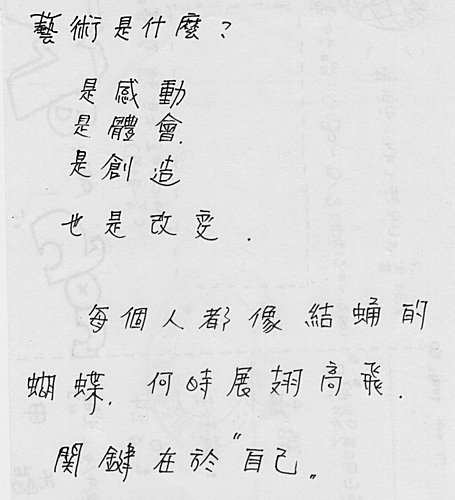 藝術是什麼？
是感動
是體會.
是創造
也是改变.
每個人都像結蛹的
蝴蝶.何時展翅高飛.
関鍵在於"自己"